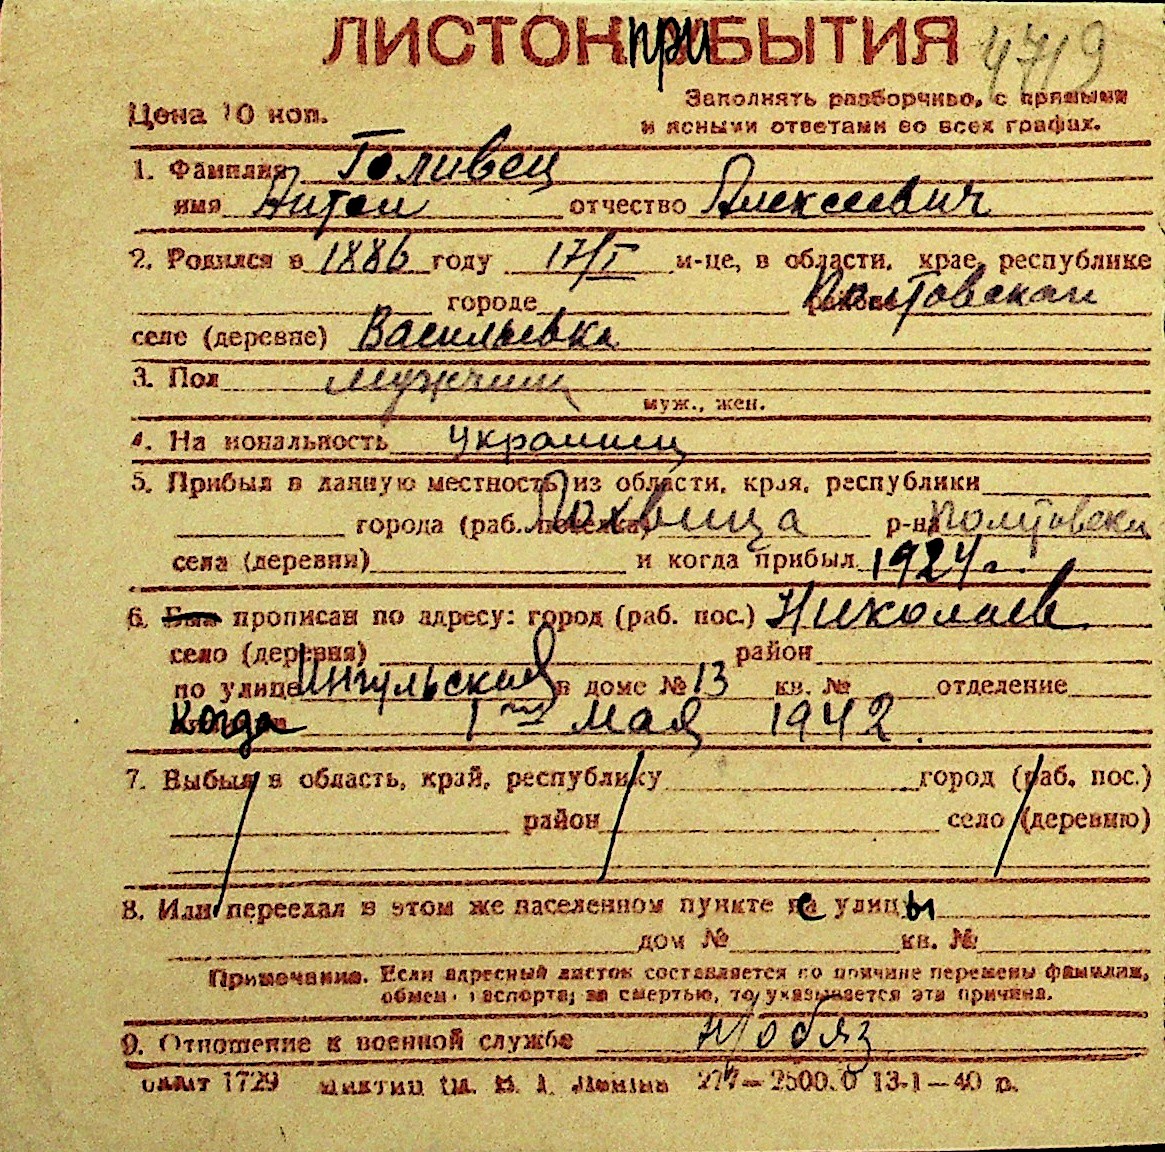 ЛИСТОК при БЫТИЯ 4719
Цена 10 коп. Заполнять разборчиво, с прямыми
и ясными ответами во всех графах.
1. Фамилия Голивец
имя Антон отчество Алексеевич
2. Родился в 1886 году 17/I м-це, в области, крае, республике
городе районе Полтовской
селе (деревне) Васильевка
3. Пол мужчина
муж., жен.
4. На иональность украинец
5. Прибыл в данную местность из области, края, республики
города (раб. поселка) Лохвица р-на Полтовски
села (деревни) и когда прибыл 1924 г.
6. Был прописан по адресу: город (раб. пос.) Николаев
село (деревня) район
по улице Ингульская в доме № 13 кв. № отделение
Когда 1го мая 1942.
7. Выбыл в область, край, республику город (раб. пос.)
район село (деревню)
8. Или переехал в этом же населенном пункте с улицы
дом № кв. №
Примечание. Если адресный листок составляется по причине перемены фамилии,
обмен паспорта, за смертью, то указывается эта причина.
9. Отношение к военной службе н/обяз
1729 2500.0 13-1-40 р.